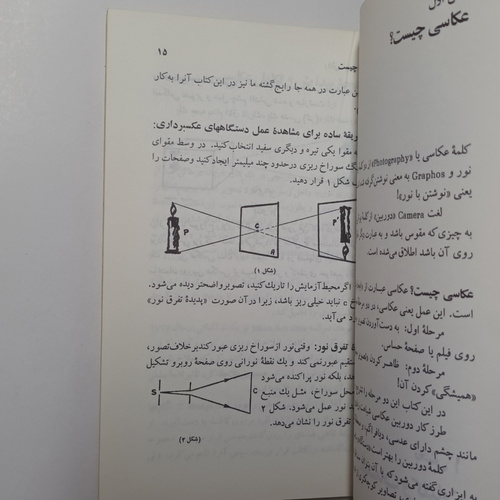 عکاسی چیست؟
کلمهٔ عکاسی یا «Photography» از دو
نور و Graphos به معنی نوشتن گرفته
یعنی «نوشتن با نور»!
لغت Camera (دوربین) از کلمهٔ
به چیزی که مقوس باشد و به عبارت
روی آن باشد اطلاق می‌شده است
عکاسی چیست؟ عکاسی عبارت از
است. این عمل یعنی عکاسی، در دو مرحله
مرحلهٔ اول: به دست آوردن
روی فیلم یا صفحهٔ حساس.
مرحلهٔ دوم: ظاهر کردن
«همیشگی» کردن آن!
در این کتاب این دو مرحله را
طرز کار دوربین عکاسی
مانند چشم دارای عدسی، دیافراگم
کلمهٔ دوربین را بهتر است
به ابزاری گفته می‌شود که با آن
۱۵
چیست
ین عبارت در همه جا رایج گشته ما نیز در این کتاب آنرا به کار
یقه ساده برای مشاهدهٔ عمل دستگاههای عکسبرداری:
مقوا یکی تیره و دیگری سفید انتخاب کنید. در وسط مقوای
یک سوراخ ریزی درحدود چند میلیمتر ایجاد کنید وصفحات را
شکل ۱ قرار دهید.
P
C
A
P'
(شکل ۱)
اگر محیط آزمایش را تاریک کنید، تصویر واضحتر دیده می‌شود.
c نباید خیلی ریز باشد، زیرا در آن صورت «پدیدهٔ تفرق نور»
د می‌آید.
ۀ تفرق نور: وقتی نور از سوراخ ریزی عبور کند برخلاف تصور،
ستقیم عبور نمی کند و یک نقطهٔ نورانی روی صفحهٔ روبرو تشکیل
هد، بلکه نور پراکنده می‌شود
محل سوراخ، مثل یک منبع
نور عمل می‌شود. شکل ۲
تفرق نور را نشان می‌دهد.
S
C
(شکل ۲)